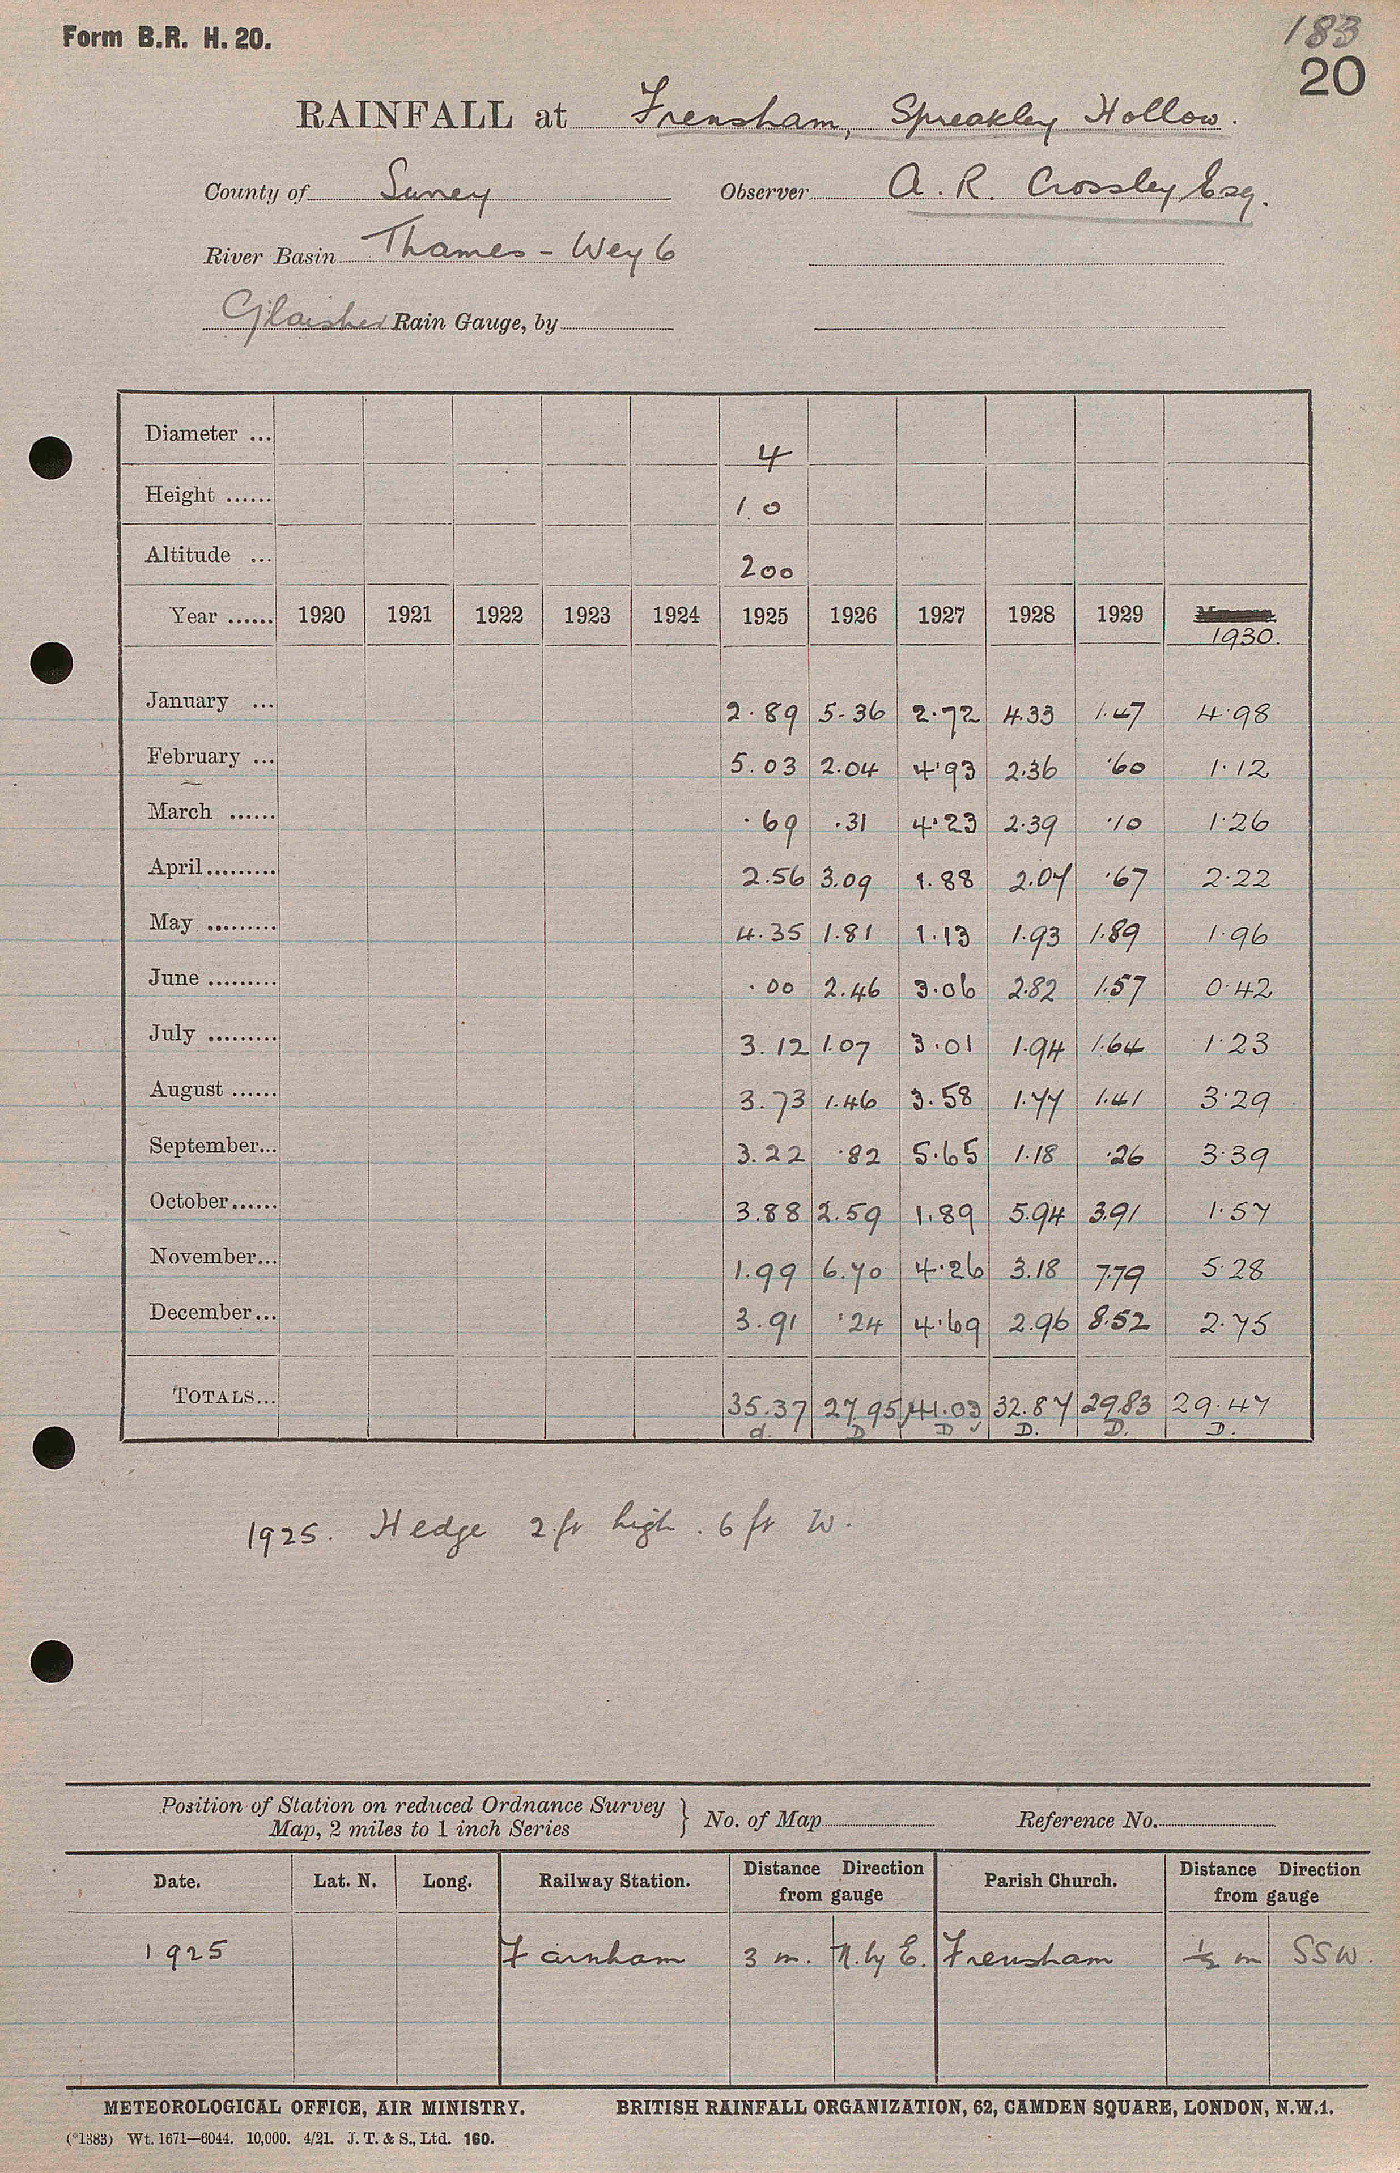 Form B.R. H. 20.
183
20
RAINFALL at Frensham, Spreakley Hollow.
County of Surrey Observer A. R. Crossley Esq.
River Basin Thames - Wey 6
Glaisher Rain Gauge, by
Diameter ... 4
Height ...... 1.0
Altitude ... 200
Year ...... 1920 1921 1922 1923 1924 1925 1926 1927 1928 1929 1930.
January ... 2.89 5.36 2.72 4.33 1.47 4.98
February ... 5.03 2.04 4.93 2.36 .60 1.12
March ...... .69 .31 4.23 2.39 .10 1.26
April......... 2.56 3.09 1.88 2.07 .67 2.22
May ......... 4.35 1.81 1.13 1.93 1.89 1.96
June ......... .00 2.46 3.06 2.82 1.57 0.42
July ......... 3.12 1.07 3.01 1.94 1.64 1.23
August ...... 3.73 1.46 3.58 1.77 1.41 3.29
September... 3.22 .82 5.65 1.18 .26 3.39
October...... 3.88 2.59 1.89 5.94 3.91 1.57
November... 1.99 6.70 4.26 3.18 7.79 5.28
December... 3.91 .24 4.69 2.96 8.52 2.75
TOTALS... 35.37 27.95 41.03 32.87 29.83 29.47
d. D D D. D. D.
1925. Hedge 2 ft high. 6 ft W.
Position of Station on reduced Ordnance Survey
Map, 2 miles to 1 inch Series } No. of Map Reference No.
Date. Lat. N. Long. Railway Station. Distance Direction from gauge Parish Church. Distance Direction from gauge
1925 Farnham 3 m. N. by E. Frensham ½ m SSW.
METEOROLOGICAL OFFICE, AIR MINISTRY. BRITISH RAINFALL ORGANIZATION, 62, CAMDEN SQUARE, LONDON, N.W.1.
(*1383) Wt. 1671—6044. 10,000. 4/21. J. T. & S., Ltd. 160.